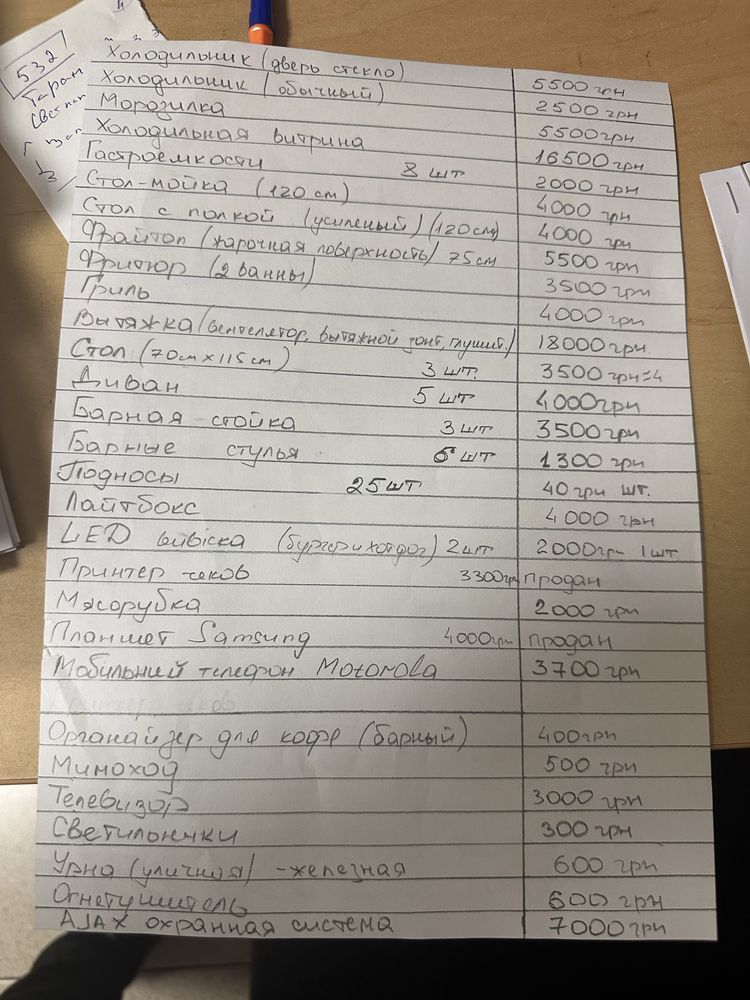 532
Таран
Холодильник (дверь стекло) 5500 грн
Холодильник (обычный) 2500 грн
Морозилка 5500 грн
Холодильная витрина 16500 грн
Гастроемкости 8 шт 2000 грн
Стол-мойка (120 см) 4000 грн
Стол с полкой (усиленый) (120 см) 4000 грн
Фрайтоп (жарочная поверхность) 75 см 5500 грн
Фритюр (2 ванны) 3500 грн
Гриль 4000 грн
Вытяжка (вентелятор, вытяжной зонт, глушит.) 18000 грн
Стол (70 см х 115 см) 3 шт. 3500 грн=4
Диван 5 шт 4000 грн
Барная стойка 3 шт 3500 грн
Барные стулья 6 шт 1300 грн
Подносы 25 шт 40 грн шт.
Лайтбокс 4000 грн
LED вивіска (бургер и хотдог) 2 шт 2000 грн 1 шт
Принтер чеков 3300 грн продан
Мясорубка 2000 грн
Планшет Samsung 4000 грн продан
Мобильний телефон Motorola 3700 грн
Принтер чеков
Органайзер для кофе (барный) 400 грн
Мимоход 500 грн
Телевизор 3000 грн
Светильники 300 грн
Урна (уличная) - железная 600 грн
Огнетушитель 600 грн
AJAX охранная система 7000 грн